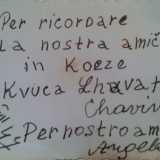 Per ricordare
La nostra amic
in Koeze
Kvuca Lhavat
Chavin
Per nostro am
Angelo